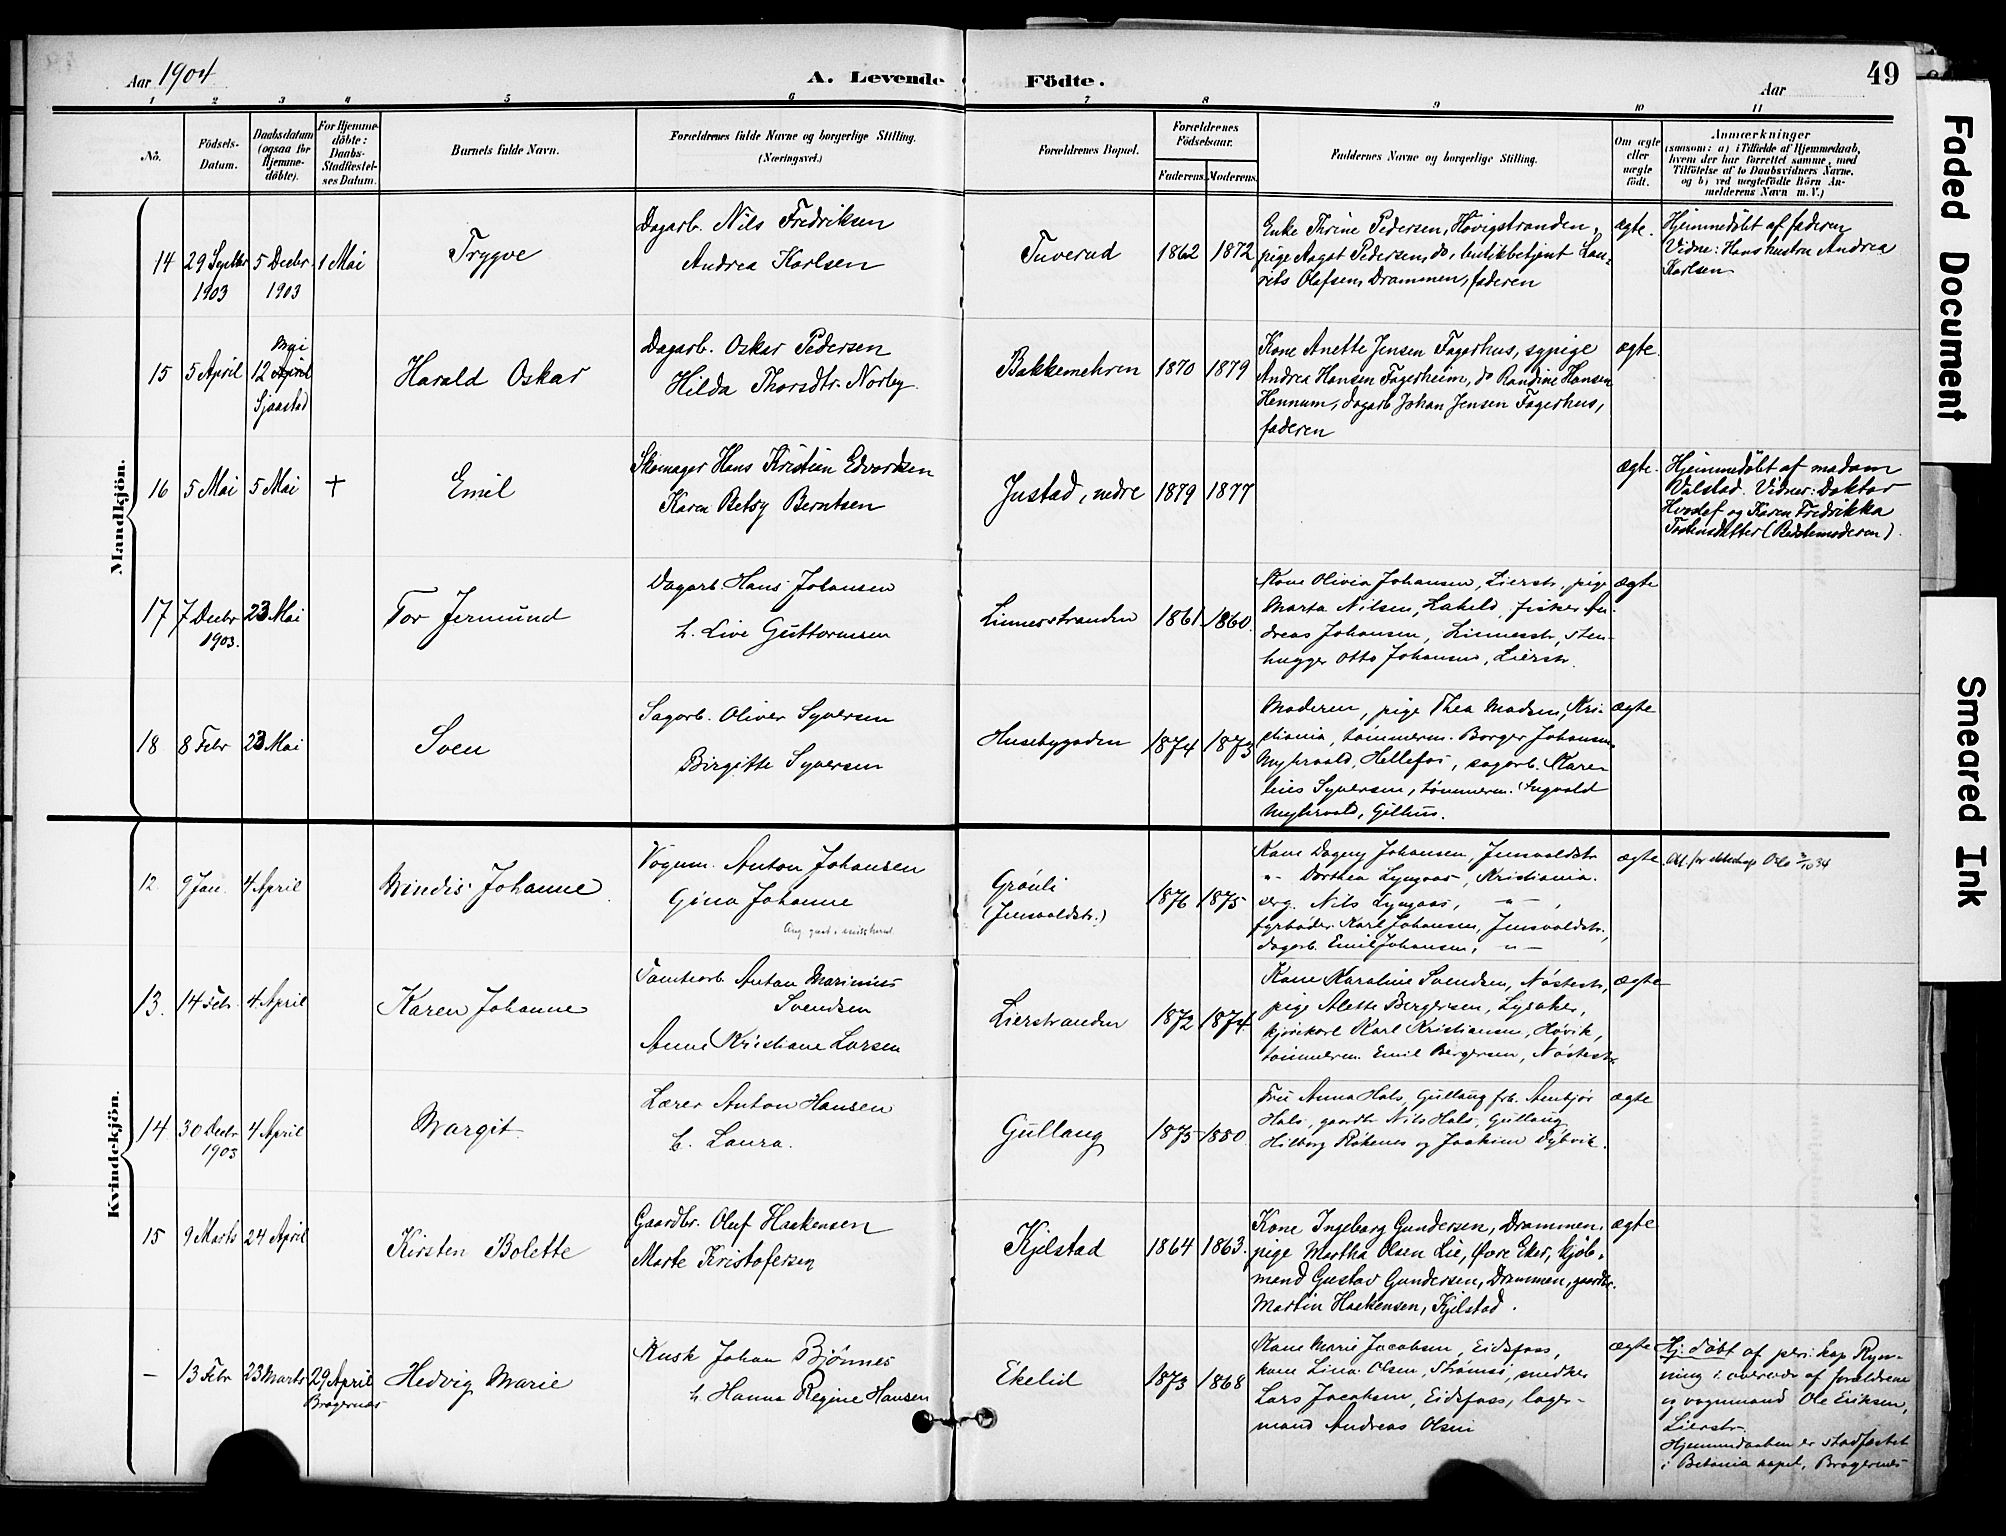 Aar 1904
A. Levende Födte.
Aar
49
1 2 3 4 5 6 7 8 9 10 11
No.
Födsels-Datum.
Daabsdatum (ogsaa for Hjemmedöbte).
For Hjemmedöbte: Daabs-Stadfæstelses Datum.
Barnets fulde Navn.
Forældrenes fulde Navne og borgerlige Stilling. (Næringsvei.)
Forældrenes Bopæl.
Forældrenes Födselsaar.
Faderens. Moderens.
Faddernes Navne og borgerlige Stilling.
Om ægte eller uægte födt.
Anmærkninger
(saasom: a) i Tilfælde af Hjemmedaab,
hvem der har forrettet samme, med
Tilföielse af to Daabsvidners Navne,
og b) ved uægtefödte Börn An-
melderens Navn m. V.)
Mandkjön.
14
29 Septbr 1903
5 Decbr. 1903
1 Mai
Trygve
Dagarb. Nils Fredriksen
Andrea Karlsen
Tuverud
1862
1872
Enke Thrine Pedersen, Høvigstranden,
pige Aagot Pedersen, do, butikbetjent Lau-
rits Olafsen, Drammen, faderen
ægte.
Hjemmedøbt af faderen
Vidne: Hans hustru Andrea
Karlsen
15
5 April
Mai
12 April
Sjaastad
Harald Oskar
Dagarb. Oskar Pedersen
Hilda Thorsdtr. Norby
Bakkemehren
1870
1879
Kone Anette Jensen Fagerhus, sypige
Andrea Hansen Fagerheim, do Randine Hansen
Hennum, dagarb Johan Jensen Fagerhus,
faderen
ægte.
16
5 Mai
5 Mai
+
Emil
Skomager Hans Kristian Edvardsen
Karen Betsy Berntsen
Justad, nedre
1879
1877
ægte.
Hjemmedøbt af madam
Valstad. Vidner: Doktor
og Karen Fredrikka
(Bedstemoderen).
17
7 Decbr 1903.
23 Mai
Tor Jermund
Dagarb. Hans Johansen
h. Live Guttormsen
Linnesstranden
1861
1860.
Kone Olivia Johansen, Lierstr, pige
Marta Nilsen, Laheld, fisker An-
dreas Johansen, Linnesstr, sten-
hugger Otto Johansen, Lierstr.
ægte
18
8 Febr
23 Mai
Sven
Sagarb. Oliver Syversen
Birgitte Syversen
Husebygaden
1874
1873
Moderen, pige Thea Madsen, Kri-
stiania, tømmerm. Borger Johansen
Myhrvold, Hellefos, sagarb. Kare-
lius Syversen, tømmerm. Ingvald
Myhrvold, Gilhus.
ægte
Kvindekjön.
12.
9 Jan.
4 April
Mindis Johanne
Vognm. Anton Johansen
Gina Johanne
Grønli
(Jensvoldstr.)
1876
1875
Kone Dagny Johansen, Jensvoldstr.
" Dorthea Lyngaas, Kristiania.
serg. Nils Lyngaas, - " - ,
fyrbøder Karl Johansen, Jensvoldstr.,
dagarb. Emil Johansen, - " -
ægte
Att. for ekteskap Oslo
13.
14 Feb.
4 April
Karen Johanne
Tomtearb. Anton Marinius
Svendsen
Anne Kristiane Larsen
Lierstranden
1872
1874.
Kone Karoline Svendsen, Nøstestr,
pige Alette Bergersen, Lysaker,
kjørekarl Karl Kristiansen, Høvik,
tømmerm. Emil Bergersen, Nøstestr
ægte
14
30 Decbr 1903
4 April
Margit
Lærer Anton Hansen
h. Laura.
Gullaug
1875
1880.
Fru Anna Hals, Gullaug, frk. Ambjør
Hals, gaardbr Nils Hals, Gullaug,
Hilborg Røkenes og Joakim Dybvik.
ægte
15
9 Marts
24 April
Kirsten Bolette
Gaardbr. Oluf Haakensen
Marte Kristofersen
Kjelstad
1864
1863.
Kone Ingeborg Gundersen, Drammen,
pige Martha Olsen Lie, Øvre Eker, kjøb-
mand Gustav Gundersen, Drammen, gaardbr.
Martin Haakensen, Kjelstad.
ægte
-
13 Febr
23 Marts
29 April
Bragernæs
Hedvig Marie
Kusk Johan Bjønnes
h. Hanna Regine Hansen
Ekelid
1873
1868
Kone Marie Jacobsen, Eidsfoss,
kone Lina Olsen, Strømsø, smedker
Lars Jacobsen, Eidsfoss, lager-
mand Andreas Olsen
ægte
Hj. døbt af pers. kap Ryn-
ning i overvær af forældrene
og vognmand Ole Eriksen,
Lierstr.
Hjemmedaaben er stadfæstet
i Betania kapel, Bragernes
Faded Document
Smeared Ink